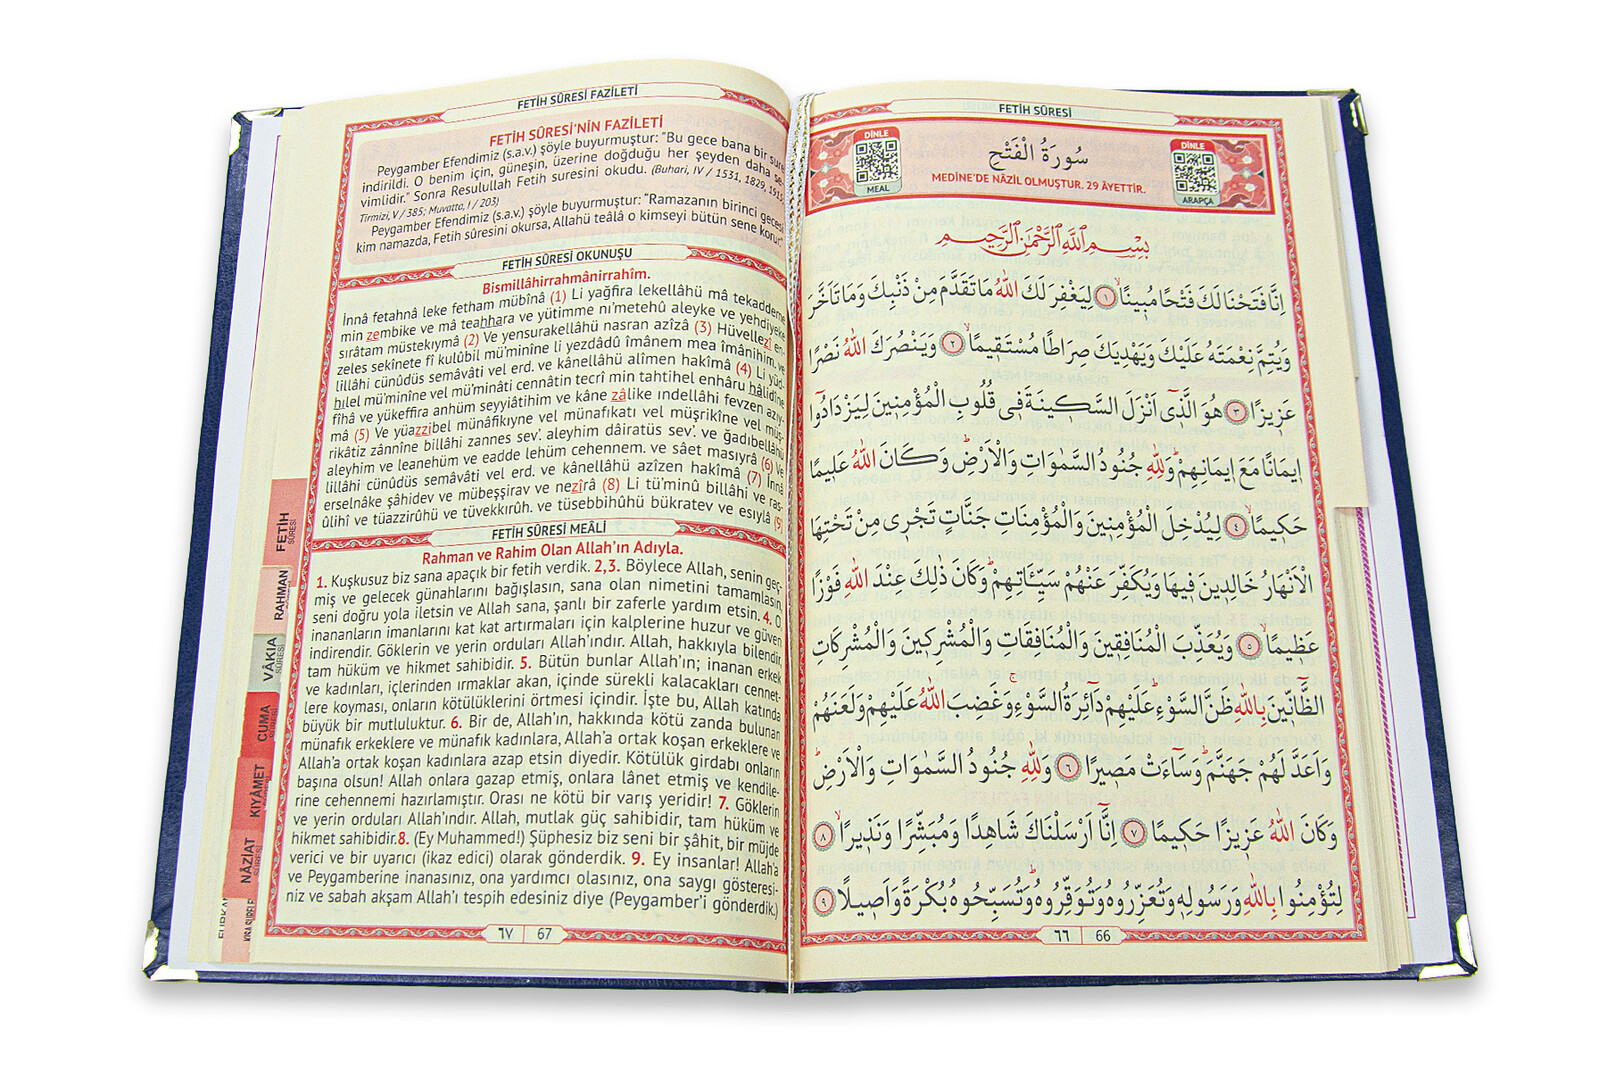 FETİH SÛRESİ
DİNLE
MEAL
سُورَةُ الْفَتْحِ
MEDİNE'DE NÂZİL OLMUŞTUR. 29 ÂYETTİR.
DİNLE
ARAPÇA
بِسْمِ اللّٰهِ الرَّحْمٰنِ الرَّحِيمِ
اِنَّا فَتَحْنَا لَكَ فَتْحًا مُبٖينًاۙ ﴿١﴾ لِيَغْفِرَ لَكَ اللّٰهُ مَا تَقَدَّمَ مِنْ ذَنْبِكَ وَمَا تَاَخَّرَ
وَيُتِمَّ نِعْمَتَهُ عَلَيْكَ وَيَهْدِيَكَ صِرَاطًا مُسْتَقٖيمًاۙ ﴿٢﴾ وَيَنْصُرَكَ اللّٰهُ نَصْرًا
عَزٖيزًا ﴿٣﴾ هُوَ الَّذٖٓى اَنْزَلَ السَّكٖينَةَ فٖى قُلُوبِ الْمُؤْمِنٖينَ لِيَزْدَادُٓوا
اٖيمَانًا مَعَ اٖيمَانِهِمْؕ وَلِلّٰهِ جُنُودُ السَّمٰوَاتِ وَالْاَرْضِؕ وَكَانَ اللّٰهُ عَلٖيمًا
حَكٖيمًاۙ ﴿٤﴾ لِيُدْخِلَ الْمُؤْمِنٖينَ وَالْمُؤْمِنَاتِ جَنَّاتٍ تَجْرٖى مِنْ تَحْتِهَا
الْاَنْهَارُ خَالِدٖينَ فٖيهَا وَيُكَفِّرَ عَنْهُمْ سَيِّـَٔاتِهِمْؕ وَكَانَ ذٰلِكَ عِنْدَ اللّٰهِ فَوْزًا
عَظٖيمًاۙ ﴿٥﴾ وَيُعَذِّبَ الْمُنَافِقٖينَ وَالْمُنَافِقَاتِ وَالْمُشْرِكٖينَ وَالْمُشْرِكَاتِ
الظَّٓانّٖينَ بِاللّٰهِ ظَنَّ السَّوْءِؕ عَلَيْهِمْ دَٓائِرَةُ السَّوْءِۚ وَغَضِبَ اللّٰهُ عَلَيْهِمْ وَلَعَنَهُمْ
وَاَعَدَّ لَهُمْ جَهَنَّمَؕ وَسَٓاءَتْ مَصٖيرًا ﴿٦﴾ وَلِلّٰهِ جُنُودُ السَّمٰوَاتِ وَالْاَرْضِؕ
وَكَانَ اللّٰهُ عَزٖيزًا حَكٖيمًا ﴿٧﴾ اِنَّٓا اَرْسَلْنَاكَ شَاهِدًا وَمُبَشِّرًا وَنَذٖيرًاۙ ﴿٨﴾
لِتُؤْمِنُوا بِاللّٰهِ وَرَسُولِهٖ وَتُعَزِّرُوهُ وَتُوَقِّرُوهُؕ وَتُسَبِّحُوهُ بُكْرَةً وَاَصٖيلًا ﴿٩﴾
٦٦ 66
FETİH SÛRESİ FAZİLETİ
FETİH SÛRESİ'NİN FAZİLETİ
Peygamber Efendimiz (s.a.v.) şöyle buyurmuştur: "Bu gece bana bir sure
indirildi. O benim için, güneşin, üzerine doğduğu her şeyden daha se-
vimlidir." Sonra Resulullah Fetih suresini okudu. (Buhari, IV / 1531, 1829, 1915;
Tirmizi, V / 385; Muvatta, I / 203)
Peygamber Efendimiz (s.a.v.) şöyle buyurmuştur: "Ramazanın birinci gecesi
kim namazda, Fetih sûresini okursa, Allahü teâlâ o kimseyi bütün sene korur."
FETİH SÛRESİ OKUNUŞU
Bismillâhirrahmânirrahîm.
İnnâ fetahnâ leke fetham mübînâ (1) Li yağfira lekellâhü mâ tekaddeme
min zembike ve mâ teahhara ve yütimme ni'metehû aleyke ve yehdiyeke
sırâtam müstekıymâ (2) Ve yensurakellâhü nasran azîzâ (3) Hüvellezî en-
zeles sekînete fî kulûbil mü'minîne li yezdâdû îmânem mea îmânihim. ve
lillâhi cünûdüs semâvâti vel erd. ve kânellâhü alîmen hakîmâ (4) Li yüd-
hılel mü'minîne vel mü'minâti cennâtin tecrî min tahtihel enhâru hâlidîne
fîhâ ve yükeffira anhüm seyyiâtihim ve kâne zâlike ındellâhi fevzen azıy-
mâ (5) Ve yüazzibel münâfikıyne vel münafıkati vel müşrikîne vel müş-
rikâtiz zânnîne billâhi zannes sev'. aleyhim dâiratüs sev'. ve ğadıbellâhü
aleyhim ve leanehüm ve eadde lehüm cehennem. ve sâet masıyrâ (6) Ve
lillâhi cünûdüs semâvâti vel erd. ve kânellâhü azîzen hakîmâ (7) İnnâ
erselnâke şâhidev ve mübeşşirav ve nezîrâ (8) Li tü'minû billâhi ve ras-
ûlihî ve tüazzirûhü ve tüvekkırûh. ve tüsebbihûhü bükratev ve esıylâ (9)
FETİH SÛRESİ MEÂLİ
Rahman ve Rahim Olan Allah'ın Adıyla.
1. Kuşkusuz biz sana apaçık bir fetih verdik. 2,3. Böylece Allah, senin geç-
miş ve gelecek günahlarını bağışlasın, sana olan nimetini tamamlasın,
seni doğru yola iletsin ve Allah sana, şanlı bir zaferle yardım etsin. 4. O,
inananların imanlarını kat kat artırmaları için kalplerine huzur ve güven
indirendir. Göklerin ve yerin orduları Allah'ındır. Allah, hakkıyla bilendir,
tam hüküm ve hikmet sahibidir. 5. Bütün bunlar Allah'ın; inanan erkek
ve kadınları, içlerinden ırmaklar akan, içinde sürekli kalacakları cennet-
lere koyması, onların kötülüklerini örtmesi içindir. İşte bu, Allah katında
büyük bir mutluluktur. 6. Bir de, Allah'ın, hakkında kötü zanda bulunan
münafık erkeklere ve münafık kadınlara, Allah'a ortak koşan erkeklere ve
Allah'a ortak koşan kadınlara azap etsin diyedir. Kötülük girdabı onların
başına olsun! Allah onlara gazap etmiş, onlara lânet etmiş ve kendile-
rine cehennemi hazırlamıştır. Orası ne kötü bir varış yeridir! 7. Göklerin
ve yerin orduları Allah'ındır. Allah, mutlak güç sahibidir, tam hüküm ve
hikmet sahibidir.8. (Ey Muhammed!) Şüphesiz biz seni bir şâhit, bir müjde
verici ve bir uyarıcı (ikaz edici) olarak gönderdik. 9. Ey insanlar! Allah'a
ve Peygamberine inanasınız, ona yardımcı olasınız, ona saygı gösteresi-
niz ve sabah akşam Allah'ı tespih edesiniz diye (Peygamber'i gönderdik.)
٦٧ 67
FETİH
SÛRESİ
RAHMAN
VÂKIA
SÛRESİ
CUMA
SÛRESİ
KIYÂMET
NÂZİAT
SÛRESİ